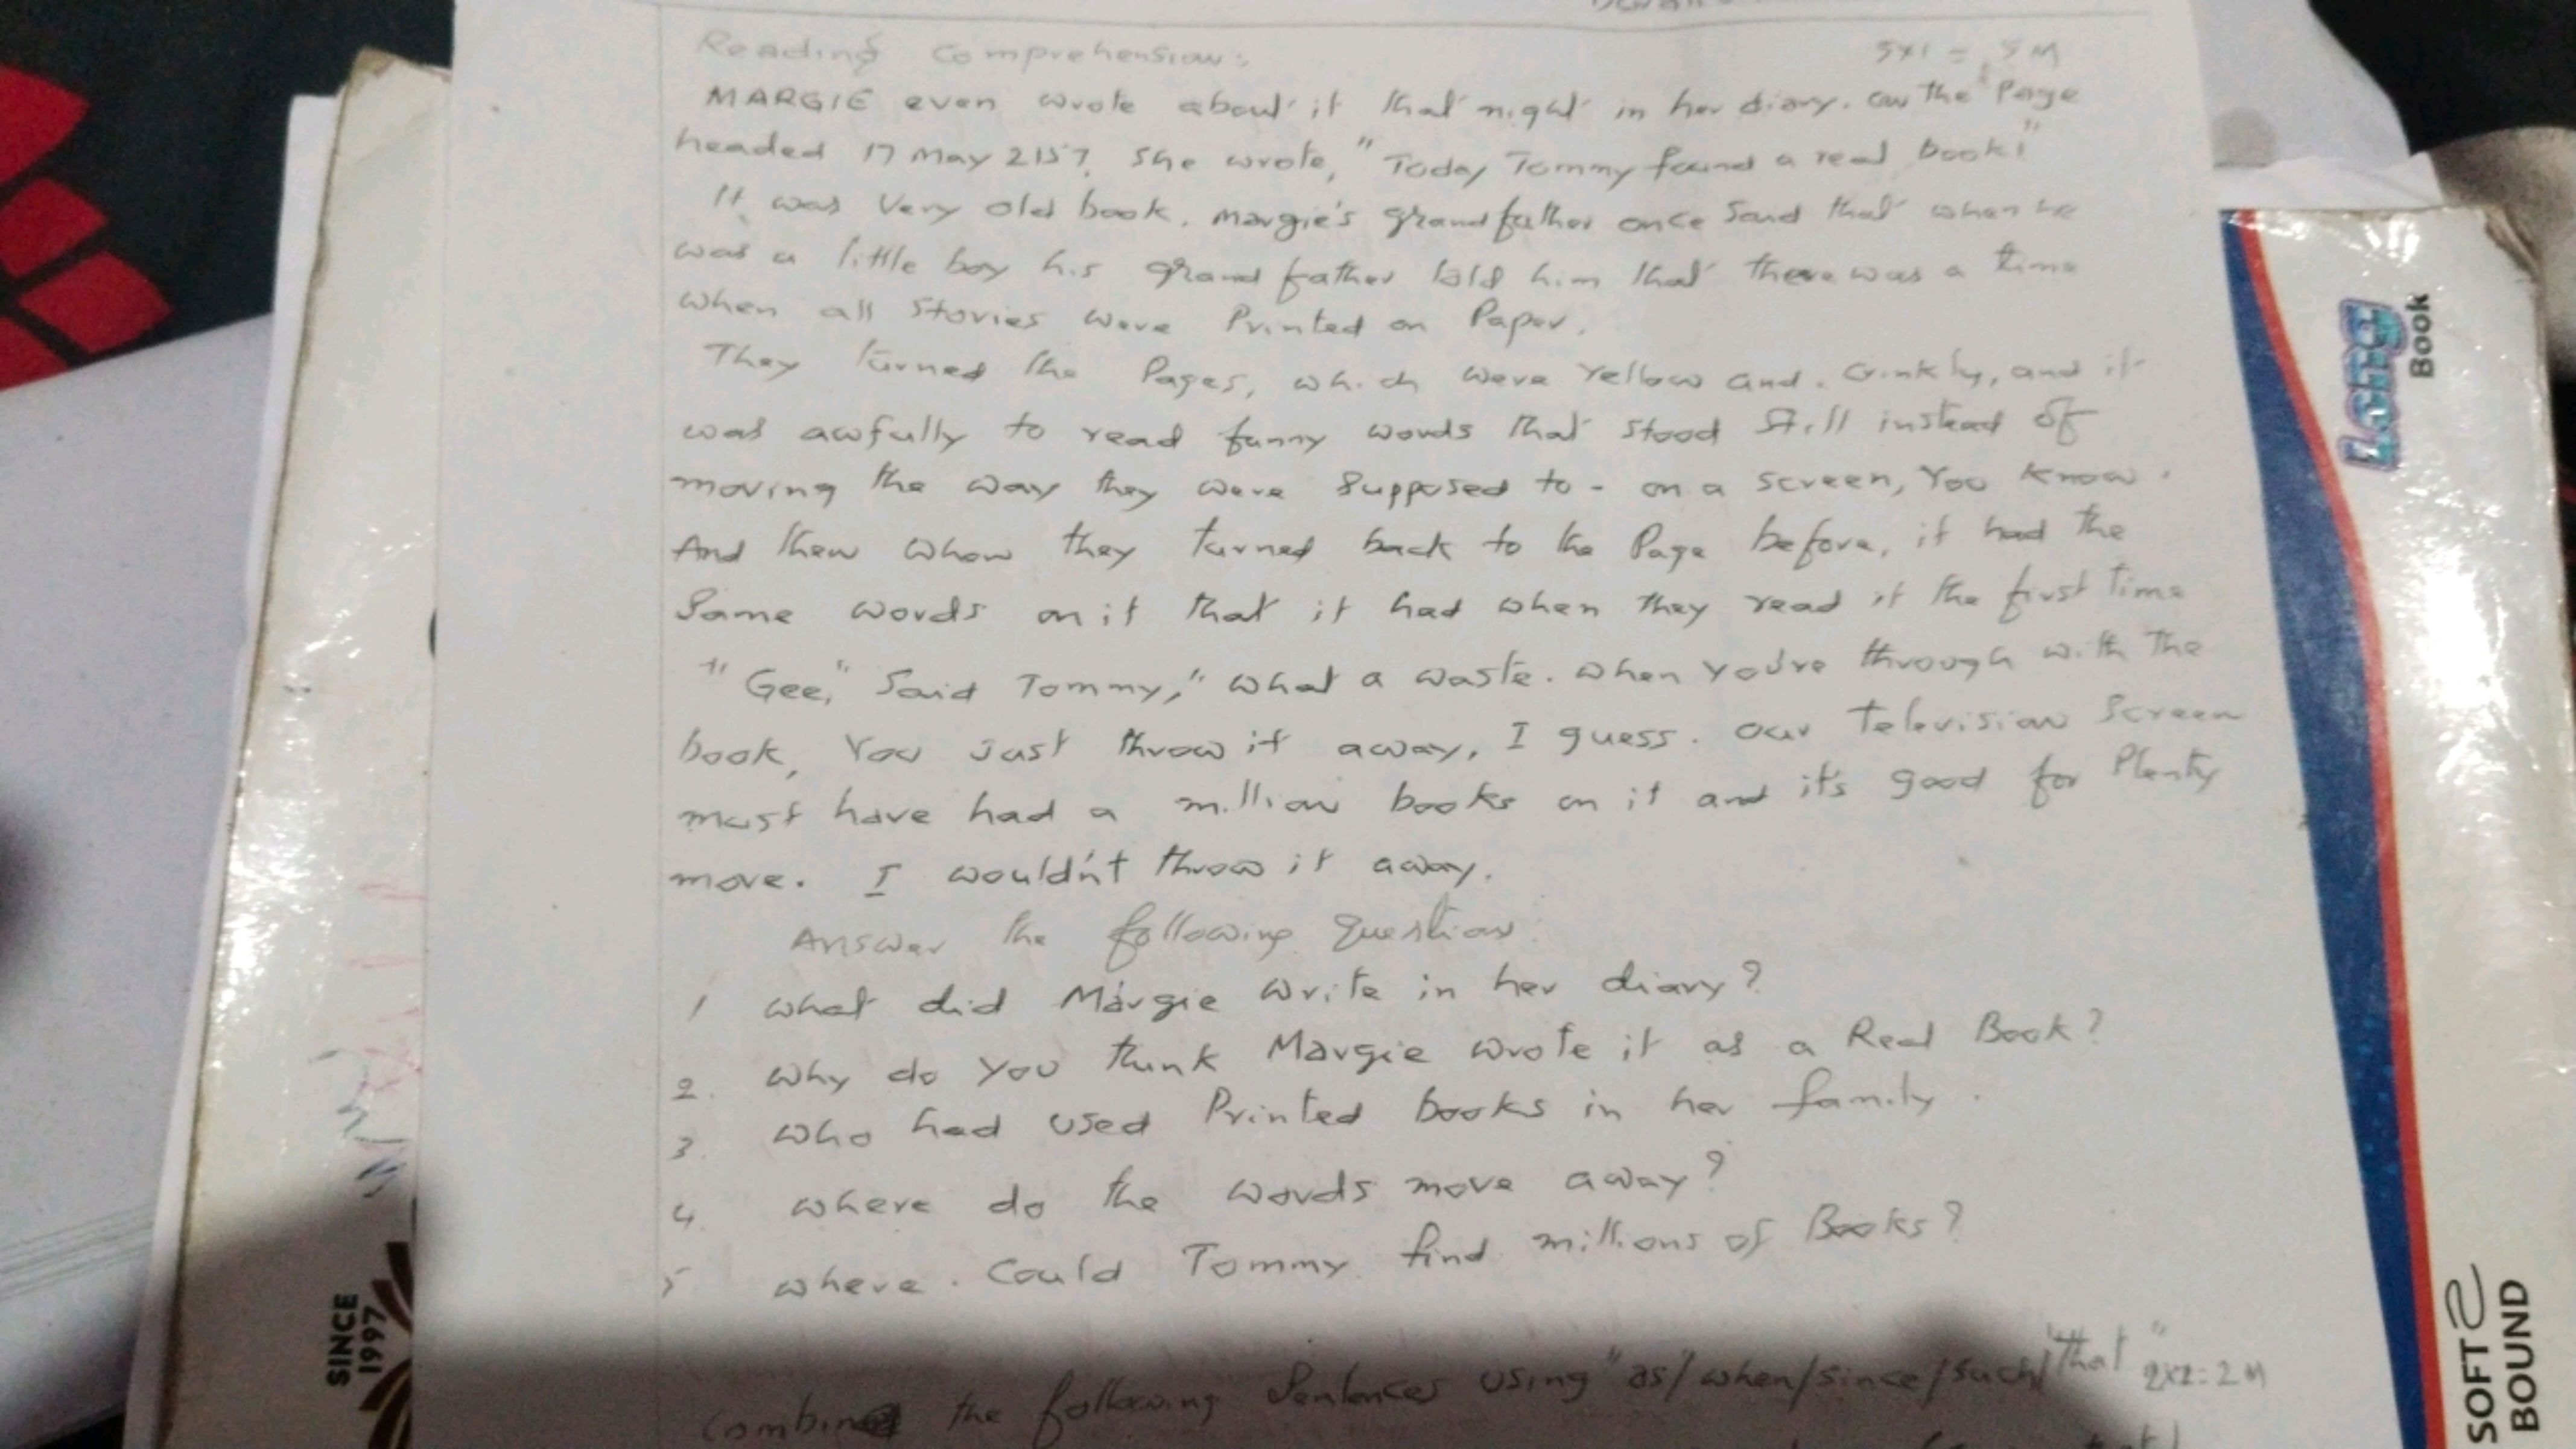 Reading Comprehension: 5x1 = 5M
MARGIE even wrote about it that night in her diary. on the Page
headed 17 May 2157, she wrote, "Today Tommy found a real book!"
It was Very old book. Margie's grandfather once Said that when he
was a little boy his grand father told him that there was a time
when all Stories were Printed on Paper.
They turned the Pages, which were Yellow and. Crinkly, and it
was awfully to read funny words that stood Still instead of
moving the way they were Supposed to - on a screen, You know.
And then when they turned back to the Page before, it had the
Same words on it that it had when they read it the first Time
"Gee," Said Tommy, "what a waste. when you're through with The
book, You Just throw it away, I guess. our Television Screen
must have had a million books on it and it's good for Plenty
more. I wouldn't throw it away.
Answer the following Questions:
1 what did Margie write in her diary?
2. why do you think Margie wrote it as a Real Book?
3. who had used Printed books in her family.
4. where do the words move away?
5 where. Could Tommy find millions of Books?
Combine the following Sentences using "as/when/since/such/that" 2x1=2M
Long
Book
SOFT
BOUND
SINCE
1997